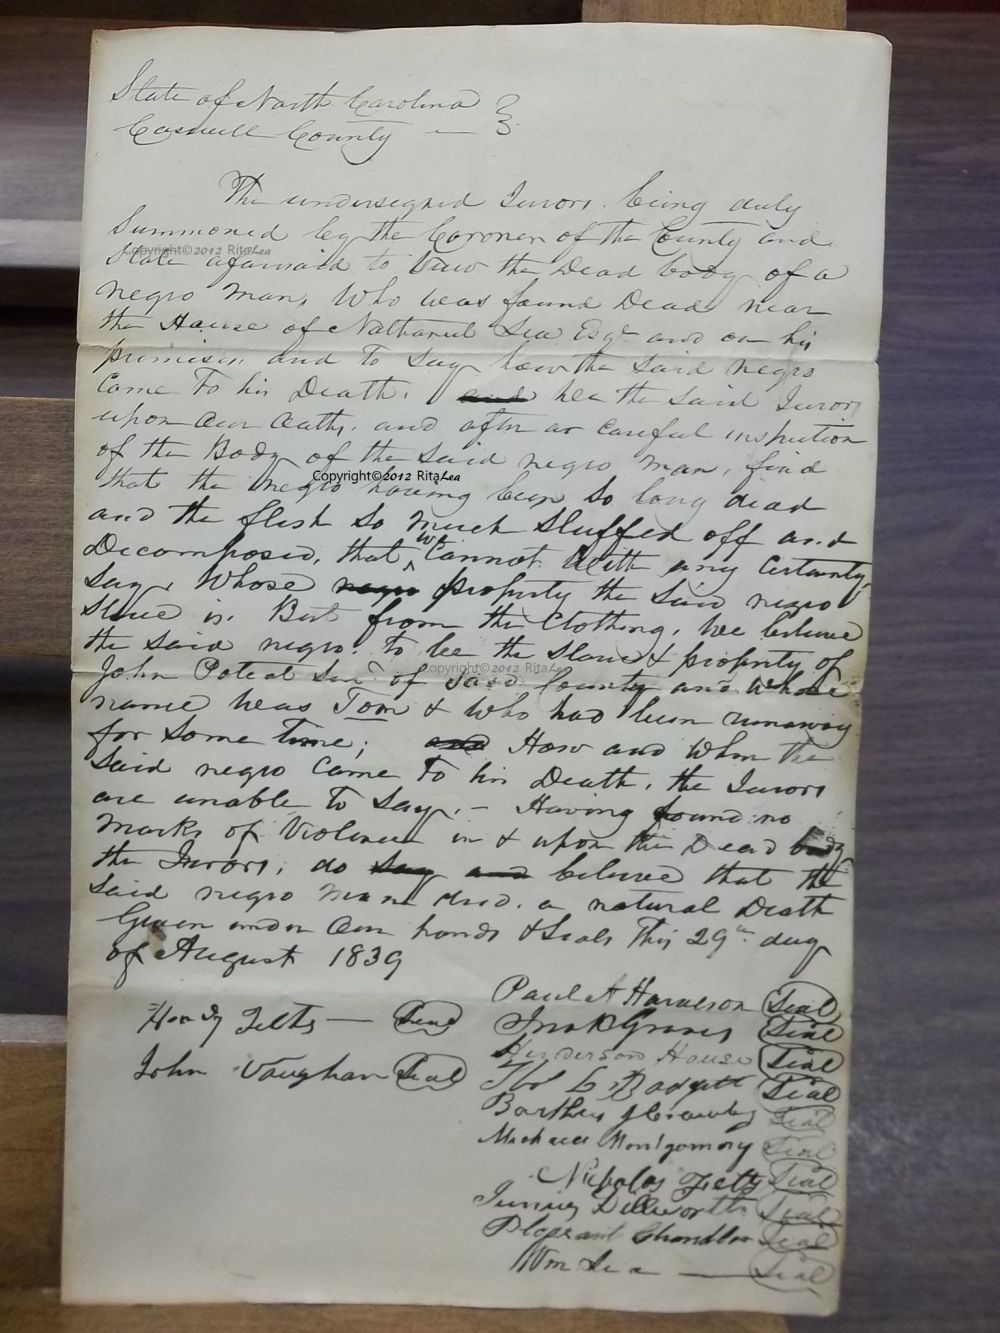 State of North Carolina
Caswell County —
The undersigned Jurors. being duly
Summoned by the Coroner of the County and
Copyright©2012 RitaLea
State aforesaid to View the Dead body of a
negro man, Who was found Dead near
the House of Nathaniel Lea Esqr and on his
premises, and To Say how the Said negro
Came To his Death. and wee the Said Jurors
upon Our Oaths. and after a careful inspection
of the Body of the Said negro man, find
Copyright©2012 RitaLea
that the negro having been So long dead
and the flesh So much Sluffed off and
Decomposed, that we Cannot With any Certainty
Say, Whose negro property the Said negro
Slave is. But from the Clothing, we believe
the said negro. to be the Slave & property of
Copyright©2012 RitaLea
John Poteat Senr of Said County and Whose
name was Tom & Who had been runaway
for Some time; and How and When the
Said negro Came To his Death, the Jurors
are unable To Say. - Having found no
Marks of Violence in & upon the Dead body
the Jurors, do say and believe that the
Said negro man died. a natural Death
Given under Our hands & Seals This 29th day
of August 1839
Paul A Haralson Seal
Seal
Henderson House Seal
Thos L. Badgett Seal
Seal
Michael Montgomery Seal
Nicholas Fetts Seal
Dillworth Seal
Pleasant Chandler Seal
Wm Lea — Seal
Fetts — Seal
John Vaughan Seal